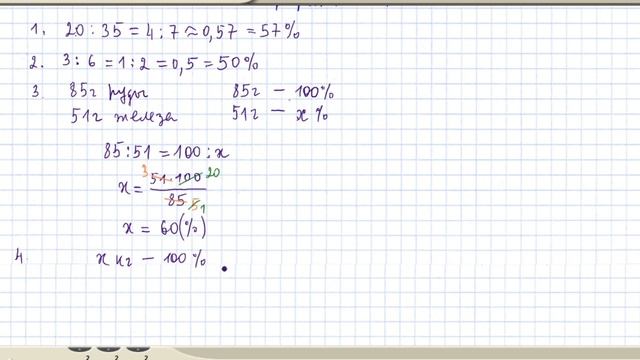 1. 20 : 35 = 4 : 7 ≈ 0,57 = 57%
2. 3 : 6 = 1 : 2 = 0,5 = 50%
3. 85г руды 85г — 100%
51г железа 51г — x %
85 : 51 = 100 : x
3 51 · 100 20
x = ———
85 5 1
x = 60(%)
4. x кг — 100%
2 2 2